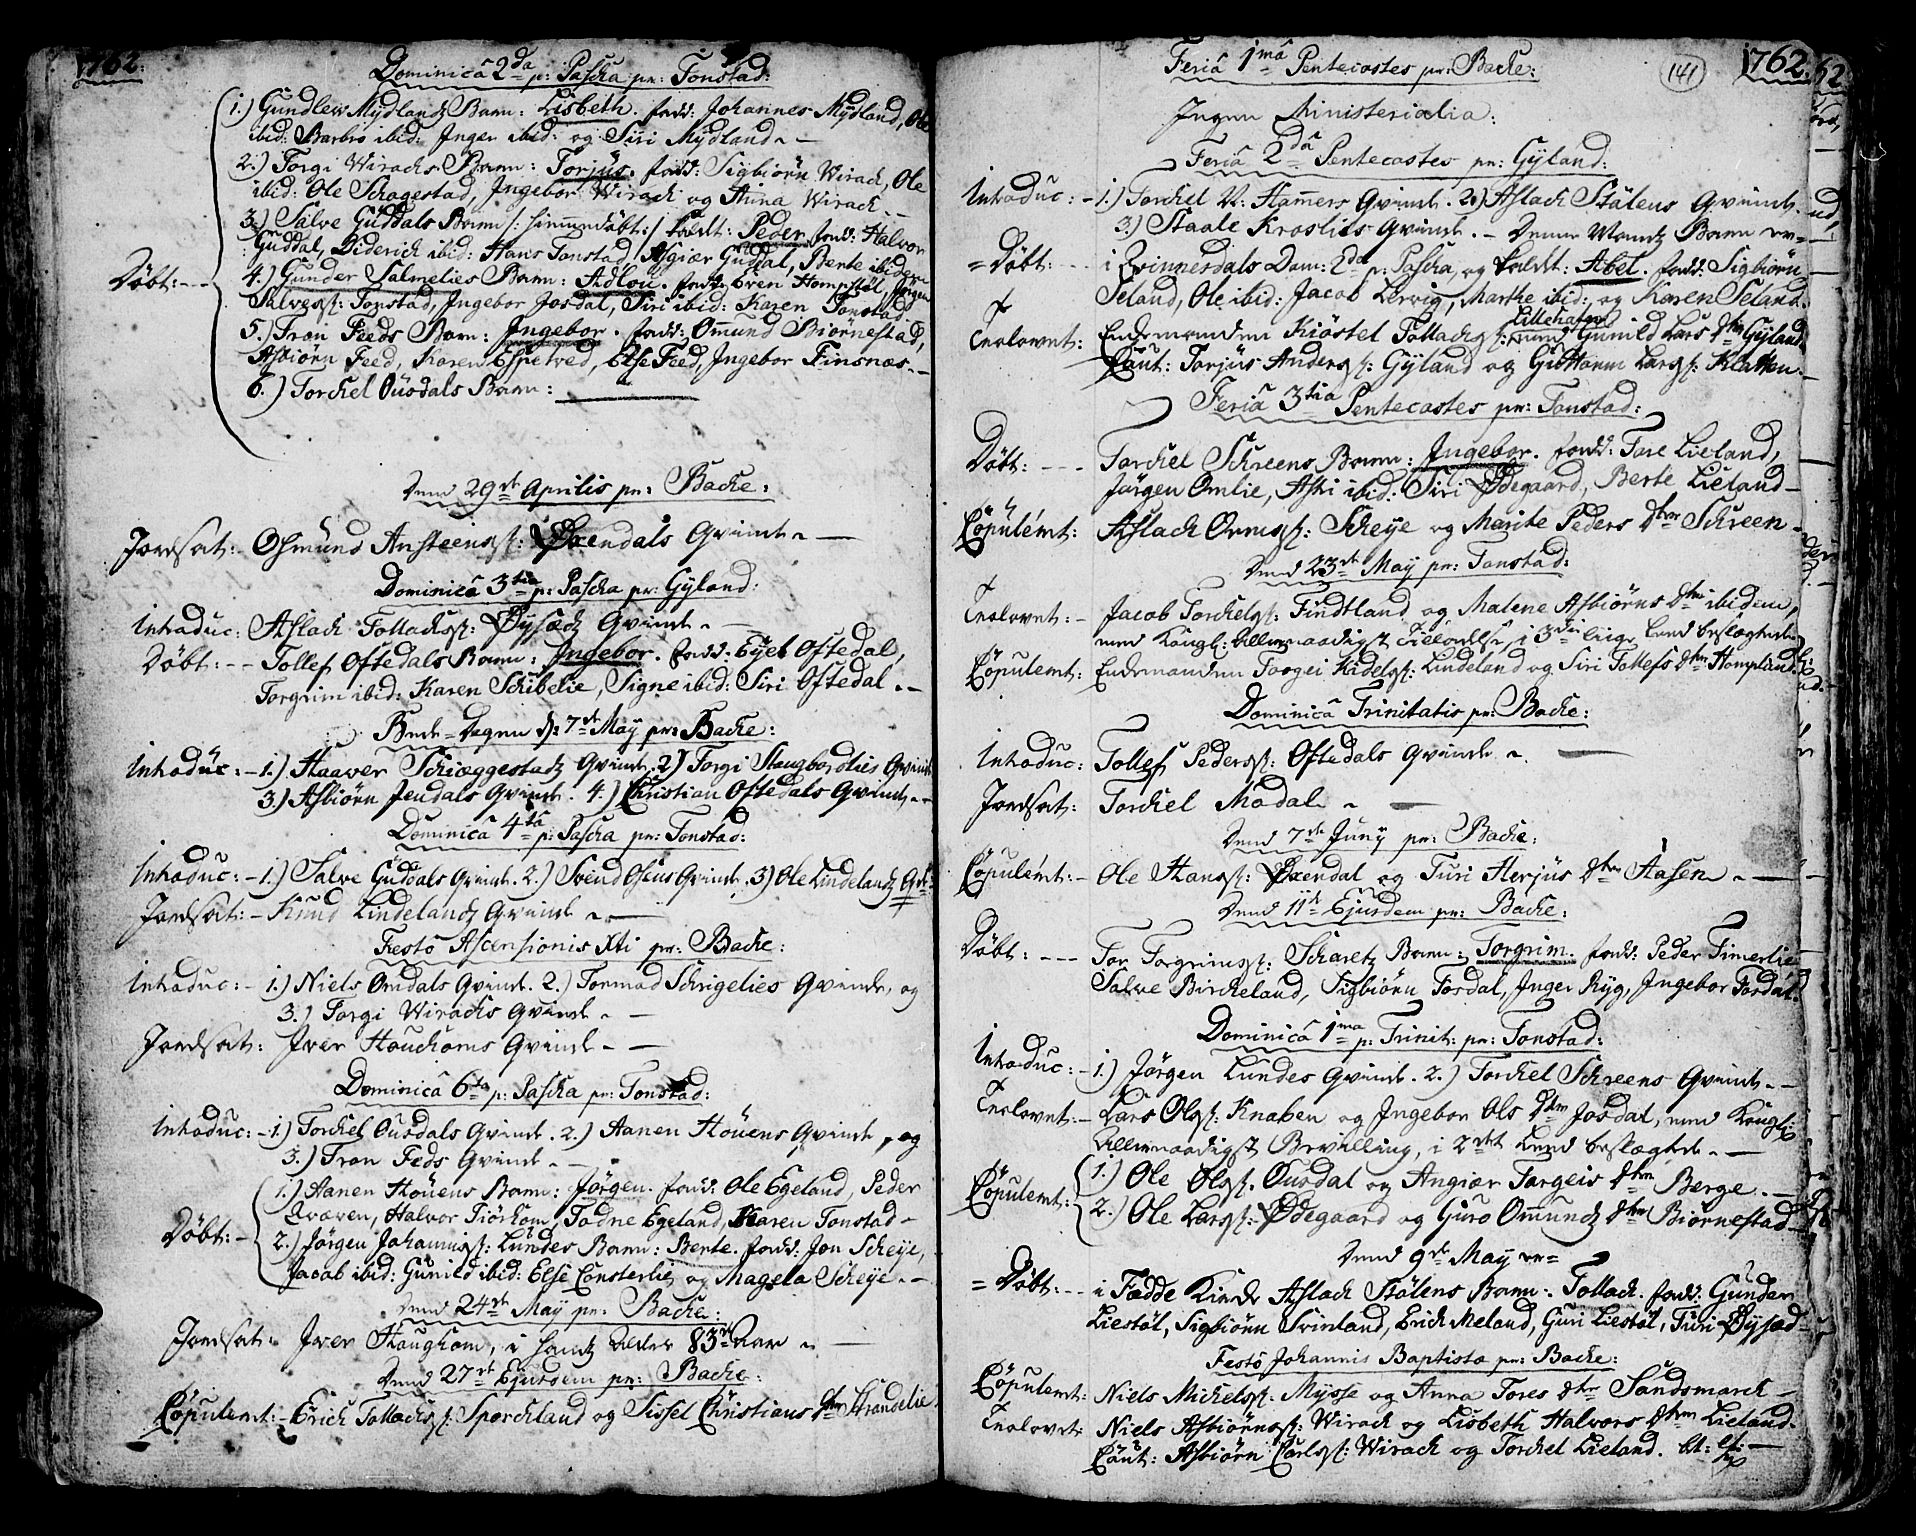 1762.
Dominica 2da p: Pascha pr: Tonstad:
1.) Gundlew Mydlands Barn: Lisbeth. fadd: Johannes Mydland, Ole
ibid: Barbro ibid: Inger ibid: og Siri Mydland. -
2.) Torgi Wirachs Barn: Torjus. fadd: Sigbiörn Wirach, Ole
ibid: Ole Schagestad, Ingebor Wirach og Anna Wirach. -
3.) Salve Guddals Barn /: hiemmedöbt :/ kaldt: Peder fadd: Halvor
Guddal, Diderich ibid: Hans Tonstad, Asgiær Guddal, Bente ibidem
4.) Gunder Salmelies Barn: Adlou. fadd: Even Homstøl, Jörgen
Salves s: Tonstad, Ingebor Josdal, Siri ibid: Karen Tonstad.
Döbt: -
5.) Tron Feeds Barn: Ingebor. fadd: Omund Biörnestad,
Asbiörn Feed, Karen Espetved, Else Feed, Ingebor Finsnæs. -
6.) Torchel Ousdals Barn:
Dend 29de Aprilis pr: Backe:
Jordsat: - Osmund Ansteens s: Øxendals Qvinde. -
Dominica 3tia p: Pascha pr: Gyland:
Introduc: Aslach Tollachs s: Øysæds Qvinde. -
Döbt: - - Tollef Oftedals Barn: Ingebor. fadd: Eyel Oftedal,
Torgrim ibid: Karen Schibelie, Signe ibid: Siri Oftedal. -
Bede-Dagen d: 7de May pr: Backe:
Introduc: - 1.) Haaver Schiæggestads Qvinde. 2.) Torgi Haugbordlies Qvinde
3.) Asbiörn Jendals Qvinde. 4.) Christian Oftedals Qvinde. -
Dominica 4ta p: Pascha pr: Tonstad:
Introduc: - 1.) Salve Guddals Qvinde. 2.) Svend Osens Qvinde, 3.) Ole Lindelands Qvde:
Jordsat: - Knud Lindelands Qvinde. -
Festo Ascensionis Xti pr: Backe:
Introduc: - 1.) Niels Omdals Qvinde. 2.) Tormod Schrigelies Qvinde, og
3.) Torgi Wirachs Qvinde. -
Jordsat: Iver Houchoms Qvinde. -
Dominica 6ta p: Pascha pr: Tonstad:
Introduc: - 1.) Torchel Ousdals Qvinde. 2.) Aanen Houens Qvinde, og
3.) Tron Feds Qvinde. -
1.) Aanen Houens Barn: Jörgen. fadd: Ole Egeland, Peder
Qvæven, Halvor Fiörhom, Tadne Egeland, Karen Tonstad -
Döbt: -
2.) Jörgen Johannis s: Lundes Barn: Bente. fadd: Jon Scheye,
Jacob ibid: Gunild ibid: Else Consterlie og Magela Scheye. -
Dend 24de May pr: Backe:
Jordsat: Iver Haughom, i hands alder 83de Aar. -
Dend 27de Ejusdem pr: Backe:
Copulerit: - Erich Tollachs s: Sporchland og Sissel Christians dtr Strandelie
141
1762.
Feria 1ma Pentecostes pr: Backe:
Ingen Ministerialia:
Feria 2da Pentecostes pr: Gyland:
Introduc: - 1.) Torchel V: Hamers Qvinde. 2.) Aslach Stölens Qvinde.
3.) Staale Kroslies Qvinde. - Denne Mands Barn er
= Döbt: - i Qvinnesdals Dom: 2da p: Pascha, og kaldt: Abel. fadd: Sigbiörn
Seland, Ole ibid: Jacob Lervig, Marthe ibid: og Karen Seland.
Trolovet: Enkemanden Kiöstel Tollachs s: Lillehafen med Gunild Lars dtr Gyland.
Caut: Torjus Anders s: Gyland og Gibthorm Lars s: Klatten.
Feria 3tia Pentecostes pr: Tonstad:
Döbt: - - Torchel Schreens Barn: Ingebor. fadd: Tore Lieland,
Jörgen Omlie, Astri ibid: Siri Ødegaard, Berte Lieland -
Copulerit: Aslach Orms s: Scheye og Marite Peders dtr Schreen -
Dend 23de May pr: Tonstad:
Trolovet: - Jacob Torchels s: Findtland og Malene Asbiörns dtr ibidem,
med Kongl: allernaadigst Tilladelse, i 3die liige leed beslægtede
Copulerit: Enkemanden Torgei Kidels s: Lindeland og Siri Tollefs dtr Homplund.
Dominica Trinitatis pr: Backe:
Introduc: Tollef Peders s: Oftedals Qvinde -
Jordsat: Torchel Modal. -
Dend 7de Juny pr: Backe:
Copulerit: - Ole Hans s: Øxendal og Turi Herjus dtr Aasen. -
Dend 11te Ejusdem pr: Backe:
Döbt: - - - Tor Torgrims s: Scharets Barn: Torgrim. fadd: Peder Timerlie
Salve Bircheland, Sigbiörn Fosdal, Inger Ryg, Ingebor Fosdal.
Dominica 1ma p: Trinit: pr: Tonstad:
Introduc: - 1.) Jörgen Lundes Qvinde. 2.) Torchel Schreens Qvinde. -
Trolovet: - Lars Ols s: Knaben og Ingebor Ols dtr Josdal, med Kongl:
allernaadigst Bevilling, i 2det Leed beslægtede. -
Copulerit: 1.) Ole Ols s. Ousdal og Angiær Torgeis dtr Berge. -
2.) Ole Lars s: Ødegaard og Guro Omunds dtr Biörnestad -
Dend 9de May er =
= Döbt: - - i Fædde Kirche Aslach Stölens Barn: Tollach. fadd: Gunder
Liestöl, Sigbiörn Svinland, Erich Meland, Guri Liestöl, Turi Øysæd -
Festo Johannis Baptista pr: Backe:
Copulerit: Niels Michels s: Mysse og Anna Tores dtr Sandsmarch -
Trolovet: Niels Asbiörns s: Wirach og Lisbeth Halvors dtr Lieland.
Caut: Asbiörn Carls s: Wirach og Torchel Lieland.